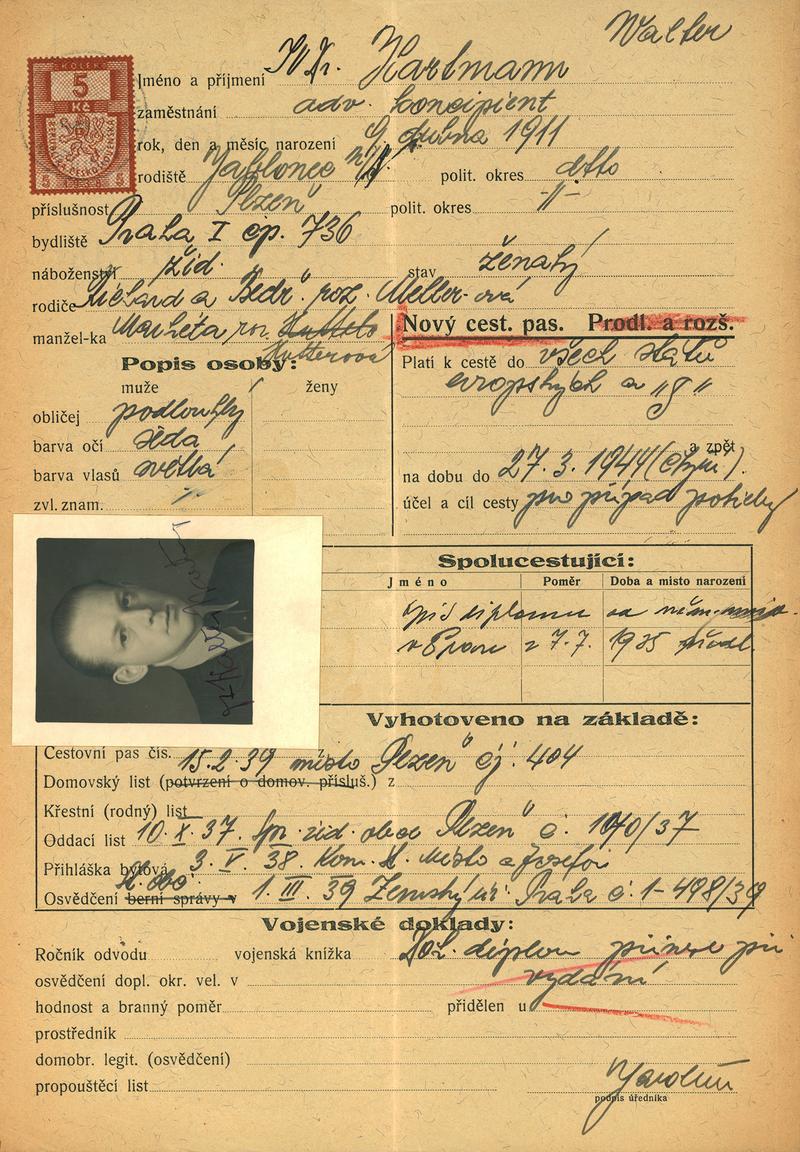 Walter
KOLEK
5
Kč
Jméno a příjmení JUDr. Hartmann
zaměstnání adv. koncipient
rok, den a měsíc narození 9. dubna 1911
rodiště Jablonec n/N. polit. okres detto
příslušnost Plzeň polit. okres -"-
bydliště Praha I čp. 736
náboženství žid. stav ženatý
rodiče Richard a Bedř. roz. Meller-ová
manžel-ka Markéta roz. Hutterová
Nový cest. pas. Prodl. a rozš.
Popis osoby:
muže ženy
obličej podlouhlý
barva očí šedá
barva vlasů světlá
zvl. znam.
Platí k cestě do všech států
evropských a „J"
a zpět
na dobu do 27. 3. 1944
účel a cíl cesty pro případ potřeby
Spolucestující:
Jméno Poměr Doba a místo narození
opis diplomu od něm.
v Praze z 7. 7. 1935 předl.
Vyhotoveno na základě:
Cestovní pas čís. 15.2.39 místo Plzeň čj. 404
Domovský list (potvrzení o domov. přísluš.) z
Křestní (rodný) list
Oddací list 10. X. 37. žid. obce Plzeň č. 140/37
Přihláška bytová 3. V. 38. Kom. St. Město a Josefov
Osvědčení berní správy v 1. III. 39 Zemský úř. Praha č. 1-498/39
Vojenské doklady:
Ročník odvodu vojenská knížka diplom přinese při
osvědčení dopl. okr. vel. v vydání
hodnost a branný poměr přidělen u
prostředník
domobr. legit. (osvědčení)
propouštěcí list
podpis úředníka